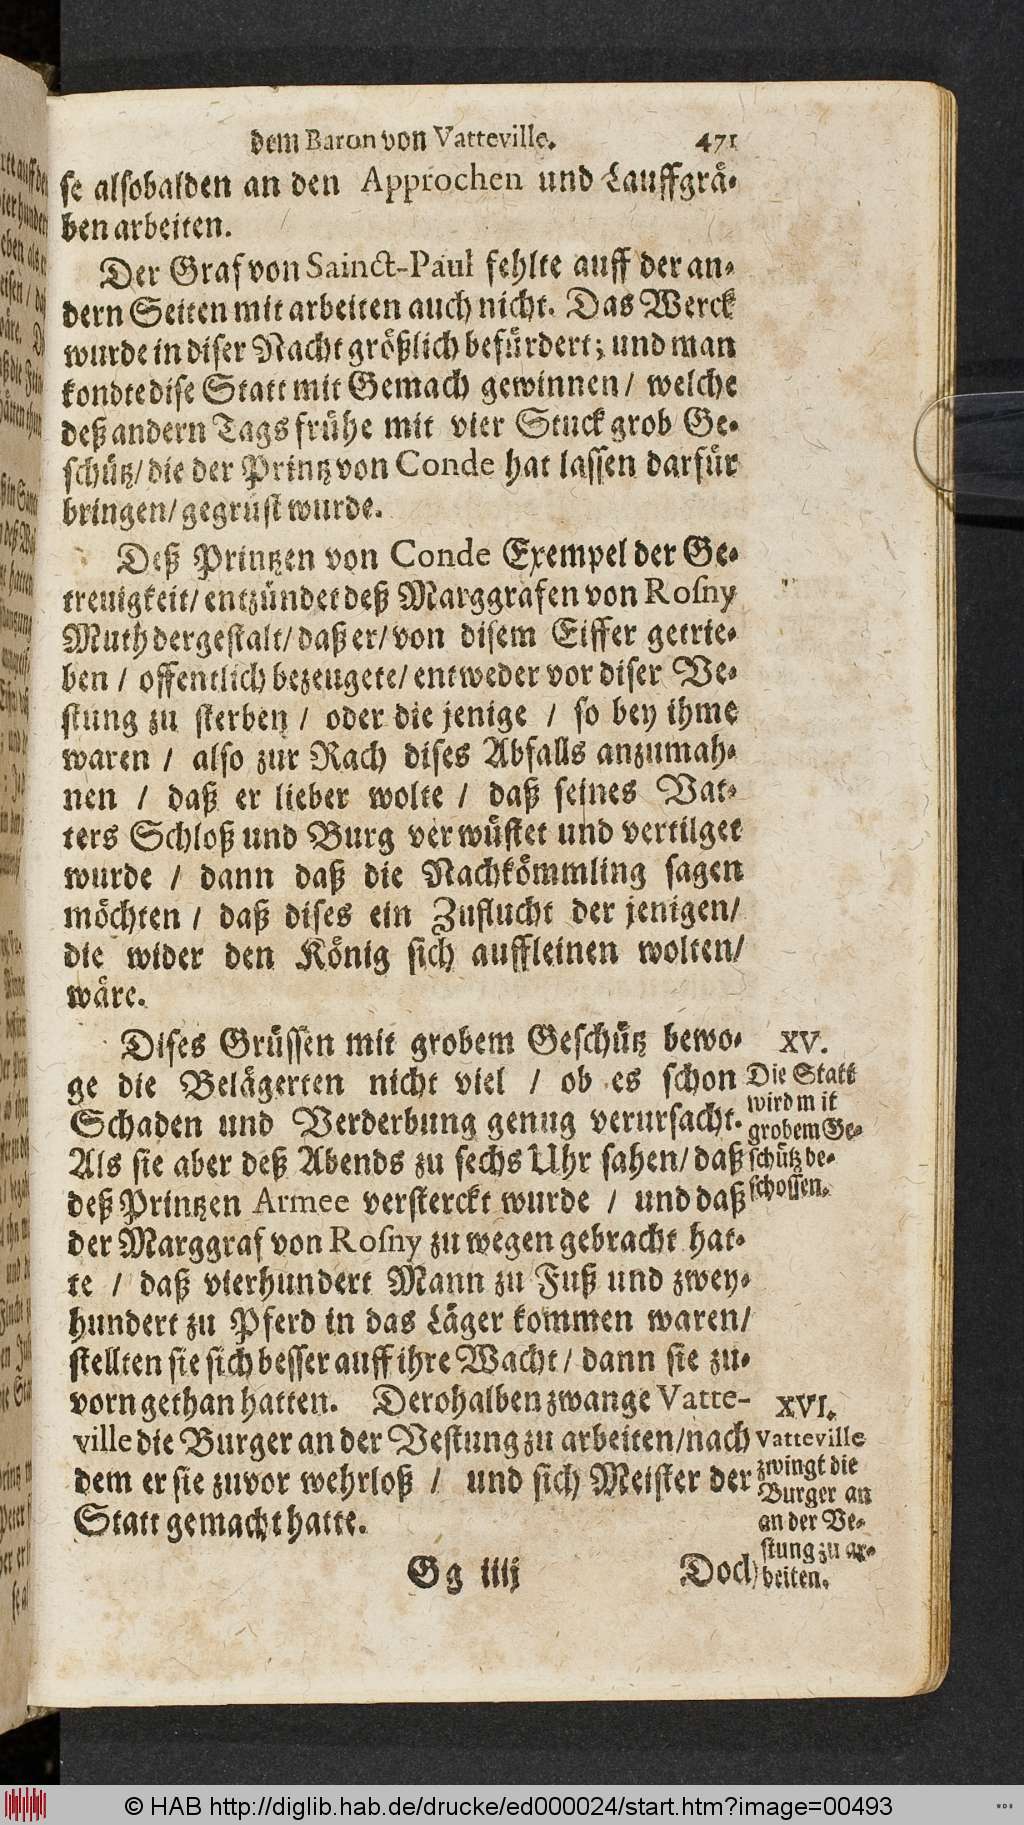 dem Baron von Vatteville. 471
se alsobalden an den Approchen und Lauffgrä-
ben arbeiten.
Der Graf von Sainct-Paul fehlte auff der an-
dern Seiten mit arbeiten auch nicht. Das Werck
wurde in diser Nacht größlich befürdert; und man
kondte dise Statt mit Gemach gewinnen / welche
deß andern Tags frühe mit vier Stuck grob Ge-
schütz / die der Printz von Conde hat lassen darfür
bringen / gegrüst wurde.
Deß Printzen von Conde Exempel der Ge-
treuigkeit / entzündet deß Marggrafen von Rosny
Muth dergestalt / daß er / von disem Eiffer getrie-
ben / offentlich bezeugete / entweder vor diser Ve-
stung zu sterben / oder die jenige / so bey ihme
waren / also zur Rach dises Abfalls anzumah-
nen / daß er lieber wolte / daß seines Vat-
ters Schloß und Burg verwüstet und vertilget
wurde / dann daß die Nachkömmling sagen
möchten / daß dises ein Zuflucht der jenigen /
die wider den König sich auffleinen wolten /
wäre.
Dises Grüssen mit grobem Geschütz bewo-
ge die Belägerten nicht viel / ob es schon
Schaden und Verderbung genug verursacht.
Als sie aber deß Abends zu sechs Uhr sahen / daß
deß Printzen Armee versterckt wurde / und daß
der Marggraf von Rosny zu wegen gebracht hat-
te / daß vierhundert Mann zu Fuß und zwey-
hundert zu Pferd in das Läger kommen waren /
stellten sie sich besser auff ihre Wacht / dann sie zu-
vorn gethan hatten. Derohalben zwange Vatte-
ville die Burger an der Vestung zu arbeiten / nach
dem er sie zuvor wehrloß / und sich Meister der
Statt gemacht hatte.
XV.
Die Statt
wird mit
grobem Ge-
schütz be-
schossen.
XVI.
Vatteville
zwingt die
Burger an
an der Ve-
stung zu ar-
beiten.
Gg iiij Doch
© HAB http://diglib.hab.de/drucke/ed000024/start.htm?image=00493